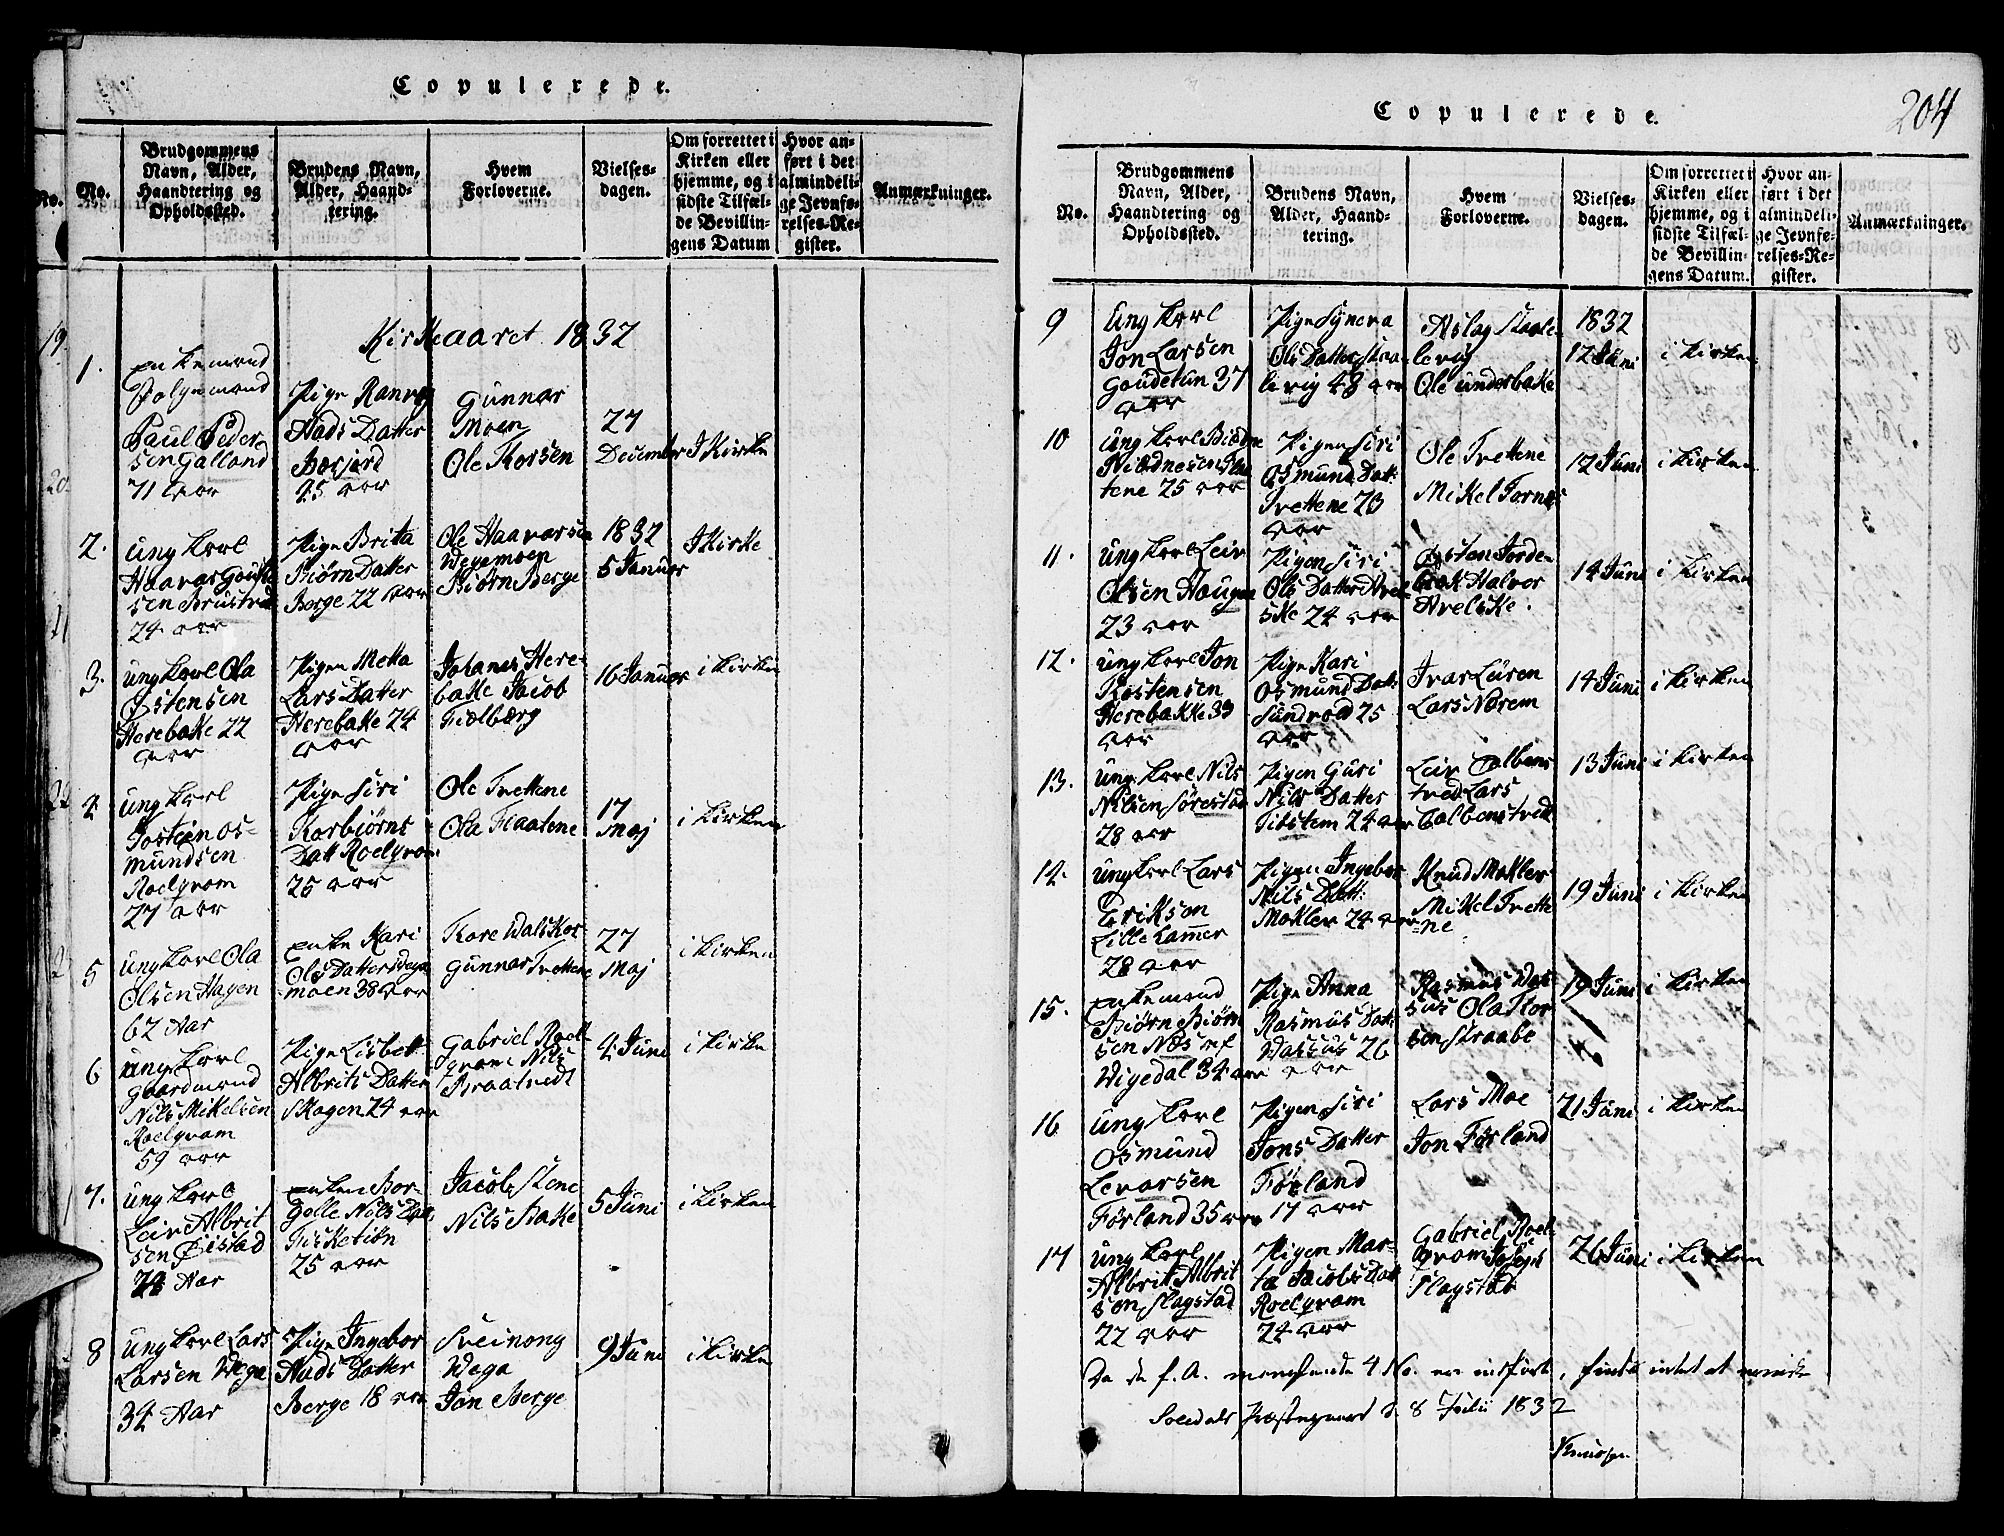 Copulerede.
No.
No.
Brudgommens
Navn, Alder,
Haandtering og
Opholdssted.
Brudens Navn,
Alder, Haand-
tering.
Hvem
Forloverne.
Vielses-
dagen.
Om forrettet i
Kirken eller
hjemme, og i
sidste Tilfæl-
de Bevillin-
gens Datum
Hvor an-
ført i det
almindeli-
ge Jevnfø-
relses-Re-
gister.
Anmærkninger.
Kirkeaaret 1832
1.
Enkemand
Paul Peder
sen Galland
71 aar
Pige Ranveg
Aads Datter
45 aar
Gunnar
Moen
Ole Torsen
27
December
I Kirke
2.
Ung Karl
Haavar
24 aar
Pige Brita
Biørn Datter
Berge 22 aar
Ole Haavarsen
Wegemoen
Biørn Berge
1832
5 Januar
I Kirke
3.
Ung Karl Ola
Østensen
Herebake 22
aar
Pigen Metta
Lars Datter
Herebake 24
aar
Johanes Here-
bake Jacob
Fiælbærg
16 Januar
i Kirken
4
Ung Karl
Jostein Os-
mundsen
Roelgvam
27 aar
Pige Siri
Torbiørns
Datt Roelgvam
25 aar
Ole Trettene
Ola Flaatene
17
Maj
i Kirken
5
Ung Karl Ola
Olsen Hagen
62 Aar
Enke Kari
Ols Datter Wege
=moen 38 aar
Tore Walskor
Gunnar Trettene
27
Maj
i Kirken
6
Ung Karl
Gaardmand
Nils Mikelsen
Roelgvam
59 aar
Pige Lisbet
Albrits Datter
Skogen 24 aar
Gabriel Roel
gvam Nils
Braatvedt
4 Juni
i Kirke
7.
Ung Karl
Leiv Albrit
sen Øistad
24 Aar
Enken Bor
Gelle Nils Dat
Fisketiøn
25 aar
Jacob Stene
Nils Bake
5 Juni
i Kirken
8
Ung Karl Lars
Larsen Wega
34 Aar
Pige Ingebor
Aads Datter
Berge 18 aar
Sveinong
Wega
Jon Berge
9 Juni
i Kirke
Copulerede.
204
No.
Brudgommens
Navn, Alder,
Haandtering og
Opholdssted.
Brudens Navn,
Alder, Haand-
tering.
Hvem
Forloverne.
Vielses-
dagen.
Om forrettet i
Kirken eller
hjemme, og i
sidste Tilfæl-
de Bevillin-
gens Datum.
Hvor an-
ført i det
almindeli-
ge Jevnfø-
relses-Re-
gister.
Anmærkninger.
9
Ung Karl
Jon Larsen
Goudetun 37
aar
Pige Syneva
Ols Datter Staa-
levig 48 aar
Aslag Staale
levig
Ole underbake
1832
12 Juni
i Kirken
10
Ung Karl
tene 25 aar
Pigen Siri
Osmund Dat:
Trettene 23
aar
Ole Trettene
Mikel Tornes
12 Juni
i Kirken
11.
Ung Karl Leiv
Olsen Hougen
23 aar
Pigen Siri
Ols Datter Avel
ske 24 aar
Østen Jorde-
bræk Halvor
Avelske.
14 Juni
i Kirken
12.
Ung Karl Jon
Tostensen
Herebakke 33
aar
Pige Kari
Osmund Dat:
Sandvod 25
aar
Ivar Luren
Lars Nærem
14 Juni
i Kirken
13.
Ung Karl Nils
Nilsen Sørestad
28 aar
Pigen Guri
Nils Datter
Tibstem 24 aar
Leiv Colbens
tved Lars
Colbenstvedt
13 Juni
i Kirken
14.
Ung Karl Lars
Erikson
Lille Lammer
28 aar
Pigen Ingebor
Nils Datt:
Mokler 24 aar
Knud Mokler
Mikel Trette
=ne
19 Juni
i Kirken
15.
Enkemand
Biørn Biørn
sen Næs af
Wigedal 34 aar
Pige Anna
Rasmus Dat:
Wassus 26
aar
Rasmus Was
sus Ola Tor
sen Straabe
19 Juni
i Kirken
16
Ung Karl
Osmund
Levarsen
Førland 35 aar
Pigen Siri
Jons Datter
Førland
17 aar
Lars Moe
Jon Førland
21 Juni
i Kirken
17
Ung Karl
Albrit Albrit
sen Slagstad
22 aar
Pigen Mar-
ta Jacobs Dat
Roelgvam
24 aar
Gabriel Roel
gvam Joseph
Slagstad
26 Juni
i Kirken
Da de f. A. manglende 4 No. er indført, findes intet at erindre
Søledals Præstegaard d. 8 Julii 1832